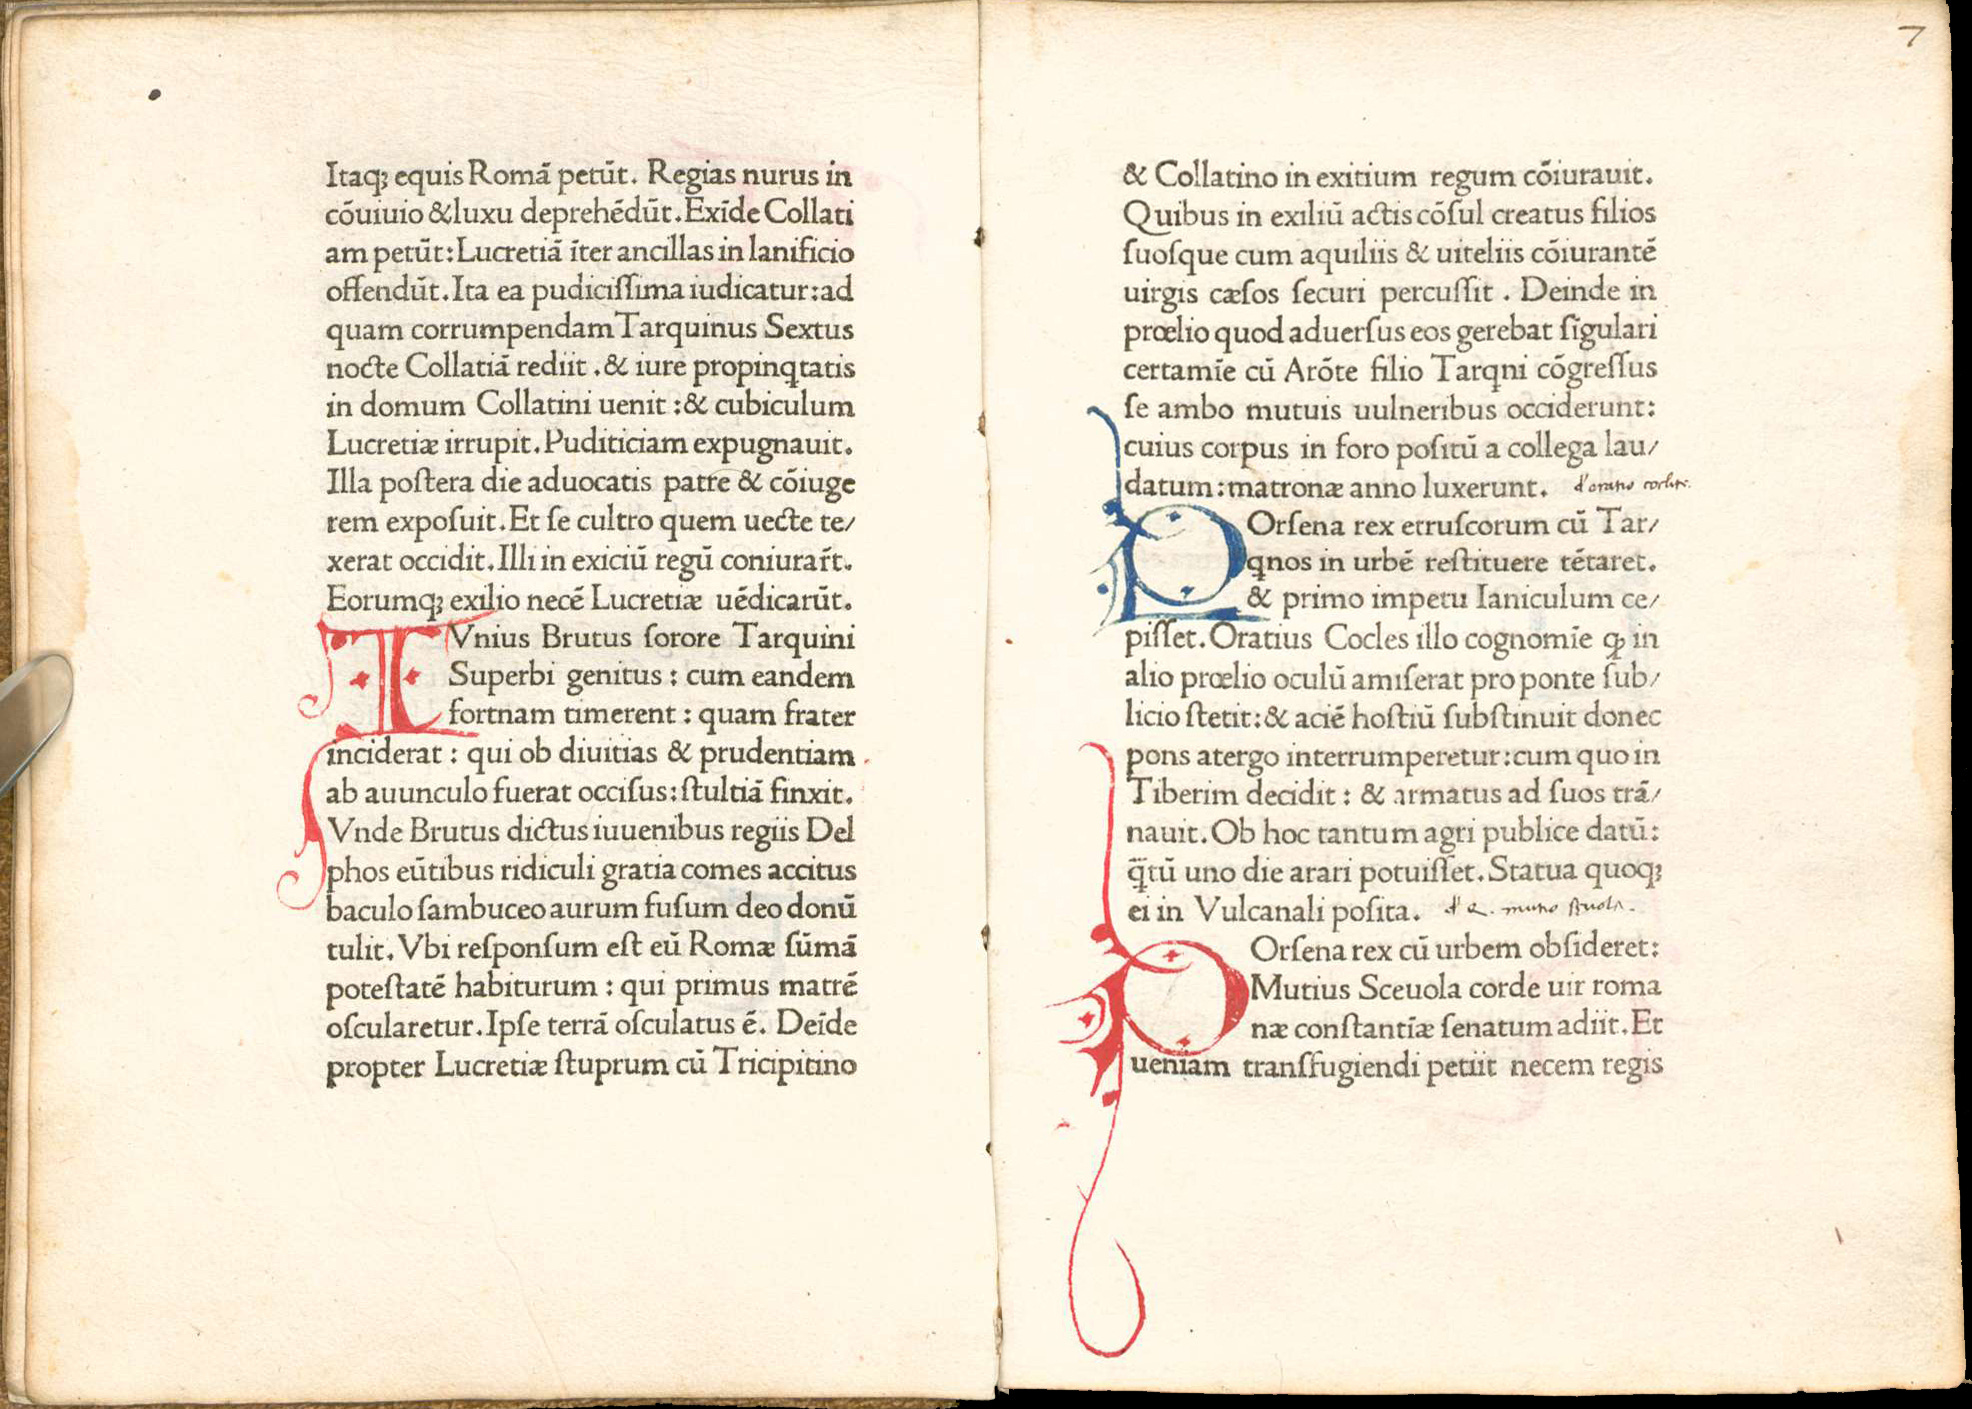 Itaqꝫ equis Romā petūt. Regias nurus in
cōuiuio &luxu deprehēdūt. Exīde Collati
am petūt: Lucretiā īter ancillas in lanificio
offendūt. Ita ea pudiciſſima iudicatur: ad
quam corrumpendam Tarquinus Sextus
nocte Collatiā rediit . & iure propinqtatis
in domum Collatini uenit : & cubiculum
Lucretiæ irrupit. Puditiciam expugnauit.
Illa poſtera die aduocatis patre & cōiuge
rem expoſuit. Et ſe cultro quem ueſte te/
xerat occidit. Illi in exiciū regū coniurar̄t.
Eorumqꝫ exilio necē Lucretiæ uēdicarūt.
IVnius Brutus ſorore Tarquini
Superbi genitus : cum eandem
fortnam timerent : quam frater
inciderat : qui ob diuitias & prudentiam
ab auunculo fuerat occiſus: ſtultiā finxit.
Vnde Brutus dictus iuuenibus regiis Del
phos eūtibus ridiculi gratia comes accitus
baculo ſambuceo aurum fuſum deo donū
tulit. Vbi reſponſum eſt eū Romæ ſūmā
poteſtatē habiturum : qui primus matrē
oſcularetur. Ipſe terrā oſculatus ē. Deīde
propter Lucretiæ ſtuprum cū Tricipitino
7
& Collatino in exitium regum cōiurauit.
Quibus in exiliū actis cōſul creatus filios
ſuoſque cum aquiliis & uiteliis cōiurantē
uirgis cæſos ſecuri percuſſit . Deinde in
prœlio quod aduerſus eos gerebat ſīgulari
certamīe cū Arōte filio Tarqni cōgreſſus
ſe ambo mutuis uulneribus occiderunt:
cuius corpus in foro poſitū a collega lau/
datum: matronæ anno luxerunt.
POrſena rex etruſcorum cū Tar/
qnos in urbē reſtituere tētaret.
& primo impetu Ianiculum ce/
piſſet. Oratius Cocles illo cognomīe ꝙ in
alio prœlio oculū amiſerat pro ponte ſub/
licio ſtetit: & aciē hoſtiū ſubſtinuit donec
pons atergo interrumperetur: cum quo in
Tiberim decidit : & armatus ad ſuos trā/
nauit. Ob hoc tantum agri publice datū:
q̄tū uno die arari potuiſſet. Statua quoqꝫ
ei in Vulcanali poſita.
POrſena rex cū urbem obſideret:
Mutius Sceuola corde uir roma
næ conſtantīæ ſenatum adiit. Et
ueniam tranſfugiendi petiit necem regis